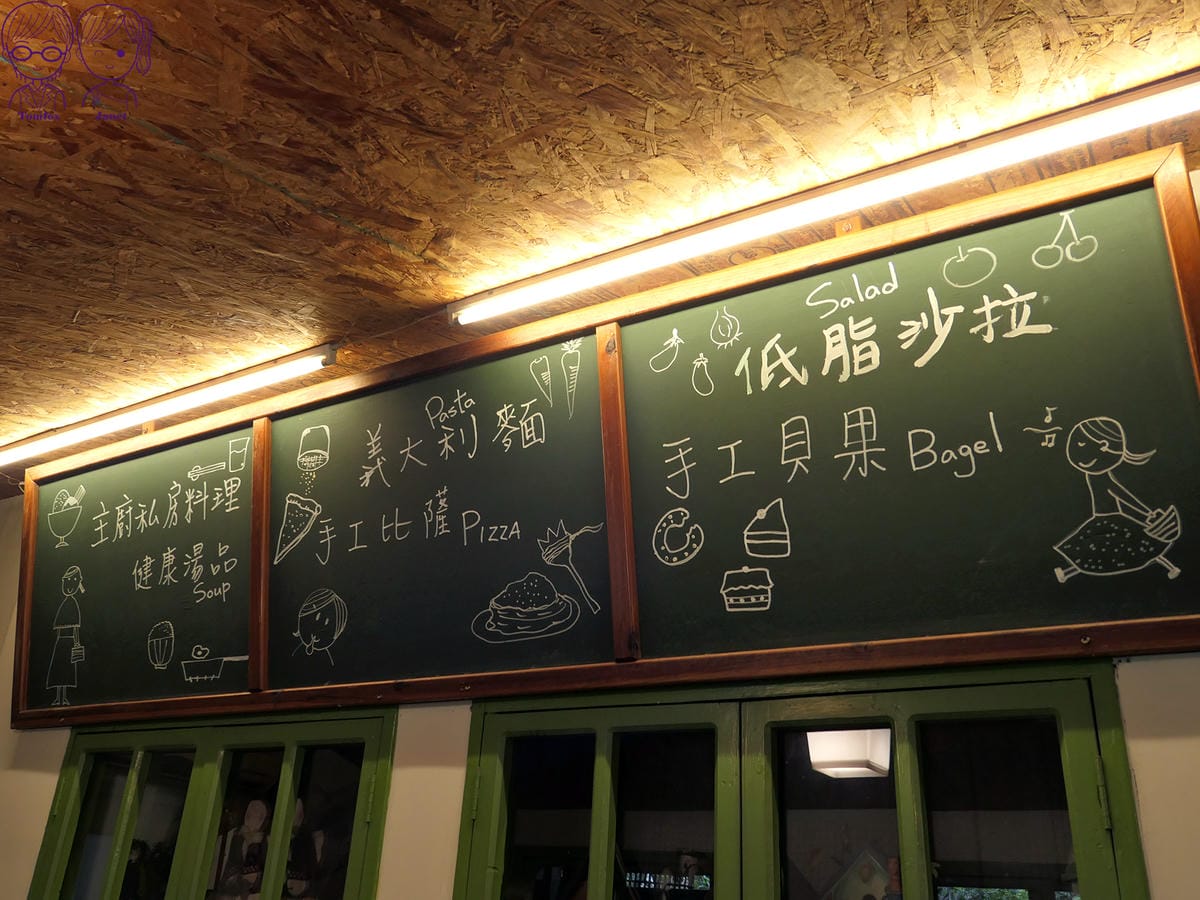 Tomfox Annet
主廚私房料理
健康湯品
Soup
Pasta
義大利麵
手工比薩 PIZZA
Salad
低脂沙拉
手工貝果 Bagel